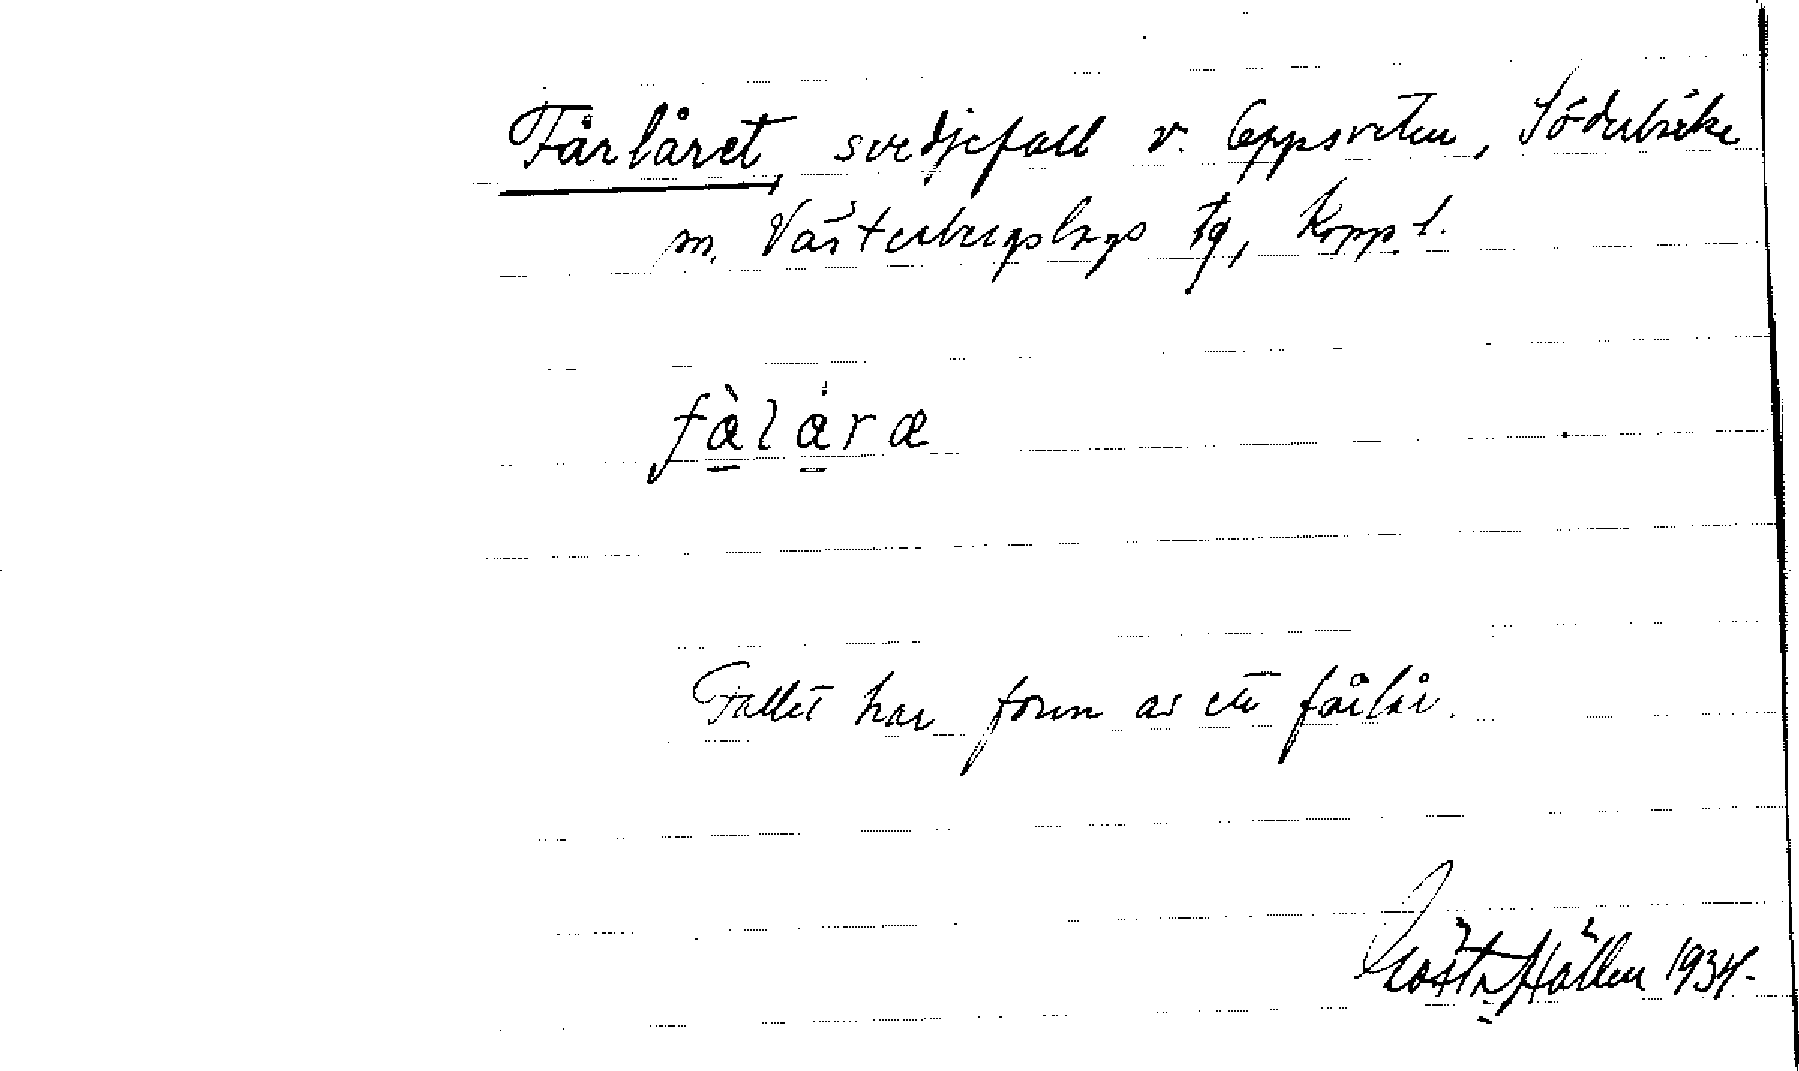 Fårlåret, svedjefall v. Oppsveten, Söderbärke
sn, Västerbergslags tg, Kopp. l.
fàlárœ
Fallet har form av ett fårlår.
Gösta Hällen 1934.